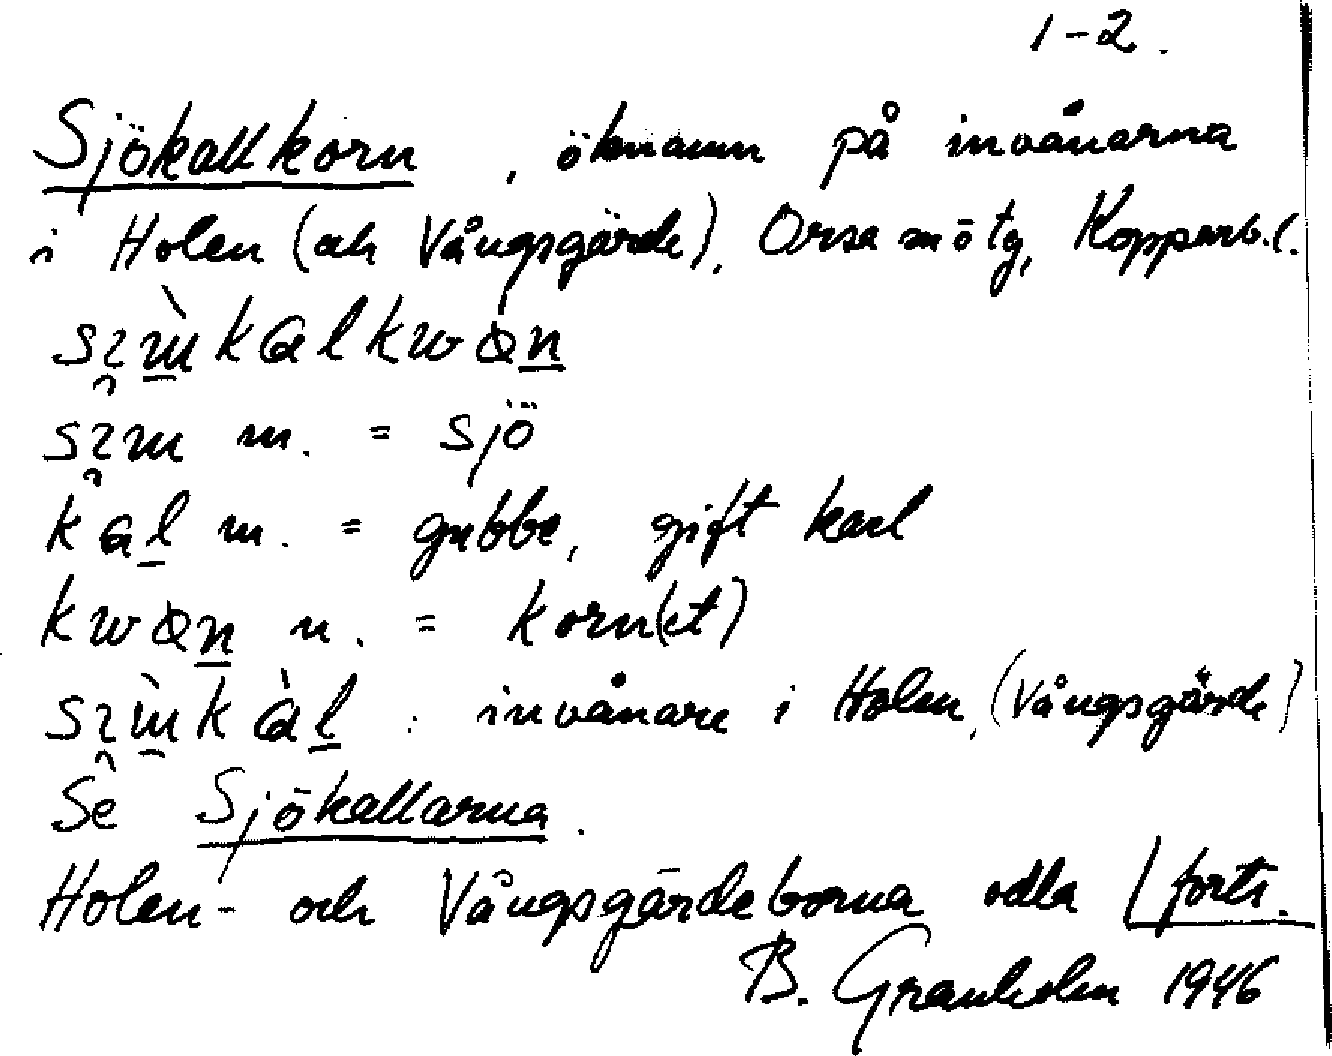 1-2.
Sjökallkorn, öknamn på invånarna
i Holen (och Vångsgärde), Orsa mötg, Kopparb.l.
m. = sjö
kal m. = gubbe, gift karl
n. = korn(et)
: invånare i Holen, (Vångsgärde)
Se Sjökallarna.
Holen- och Vångsgärdeborna odla forts.
B. Granholm 1946